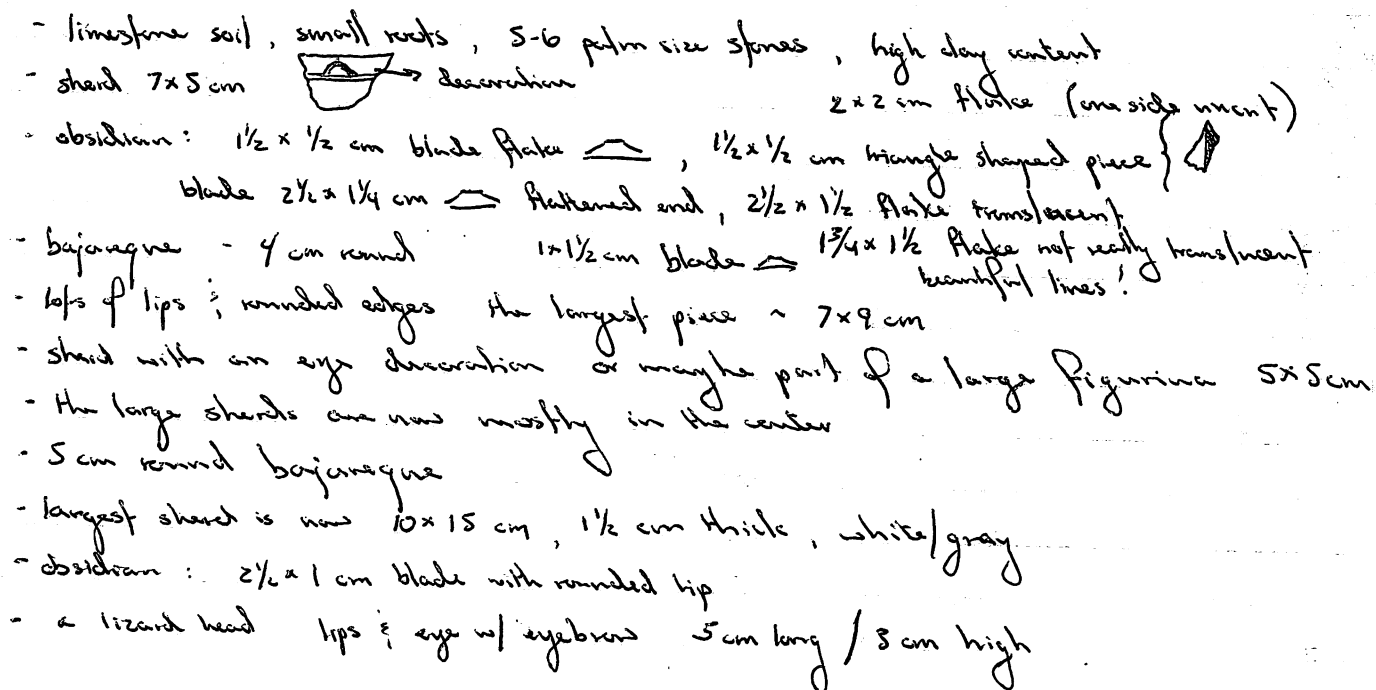 - limestone soil, small roots, 5-6 palm size stones, high clay content
- sherd 7x5 cm → decoration
2x2 cm flake (one side uncut)
- obsidian: 1½ x ½ cm blade flake, 1½ x ½ cm triangle shaped piece
blade 2½ x 1¼ cm flattened end, 2½ x 1½ flake translucent
- bajareque - 4 cm round 1x1½ cm blade 1¾ x 1½ flake not really translucent
beautiful lines!
- lots of lips & rounded edges the largest piece ~ 7x9 cm
- sherd with an eye decoration or maybe part of a large figurine 5x5cm
- the large sherds are now mostly in the center
- 5 cm round bajareque
- largest sherd is now 10x15 cm, 1½ cm thick, white/gray
- obsidian: 2½ x 1 cm blade with rounded tip
- a lizard head lips & eye w/ eyebrow 5 cm long / 3 cm high